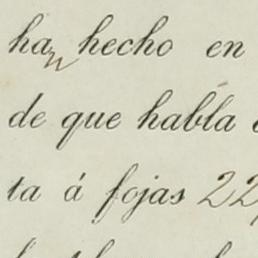 han hecho en
de que habla
ta á fojas 22